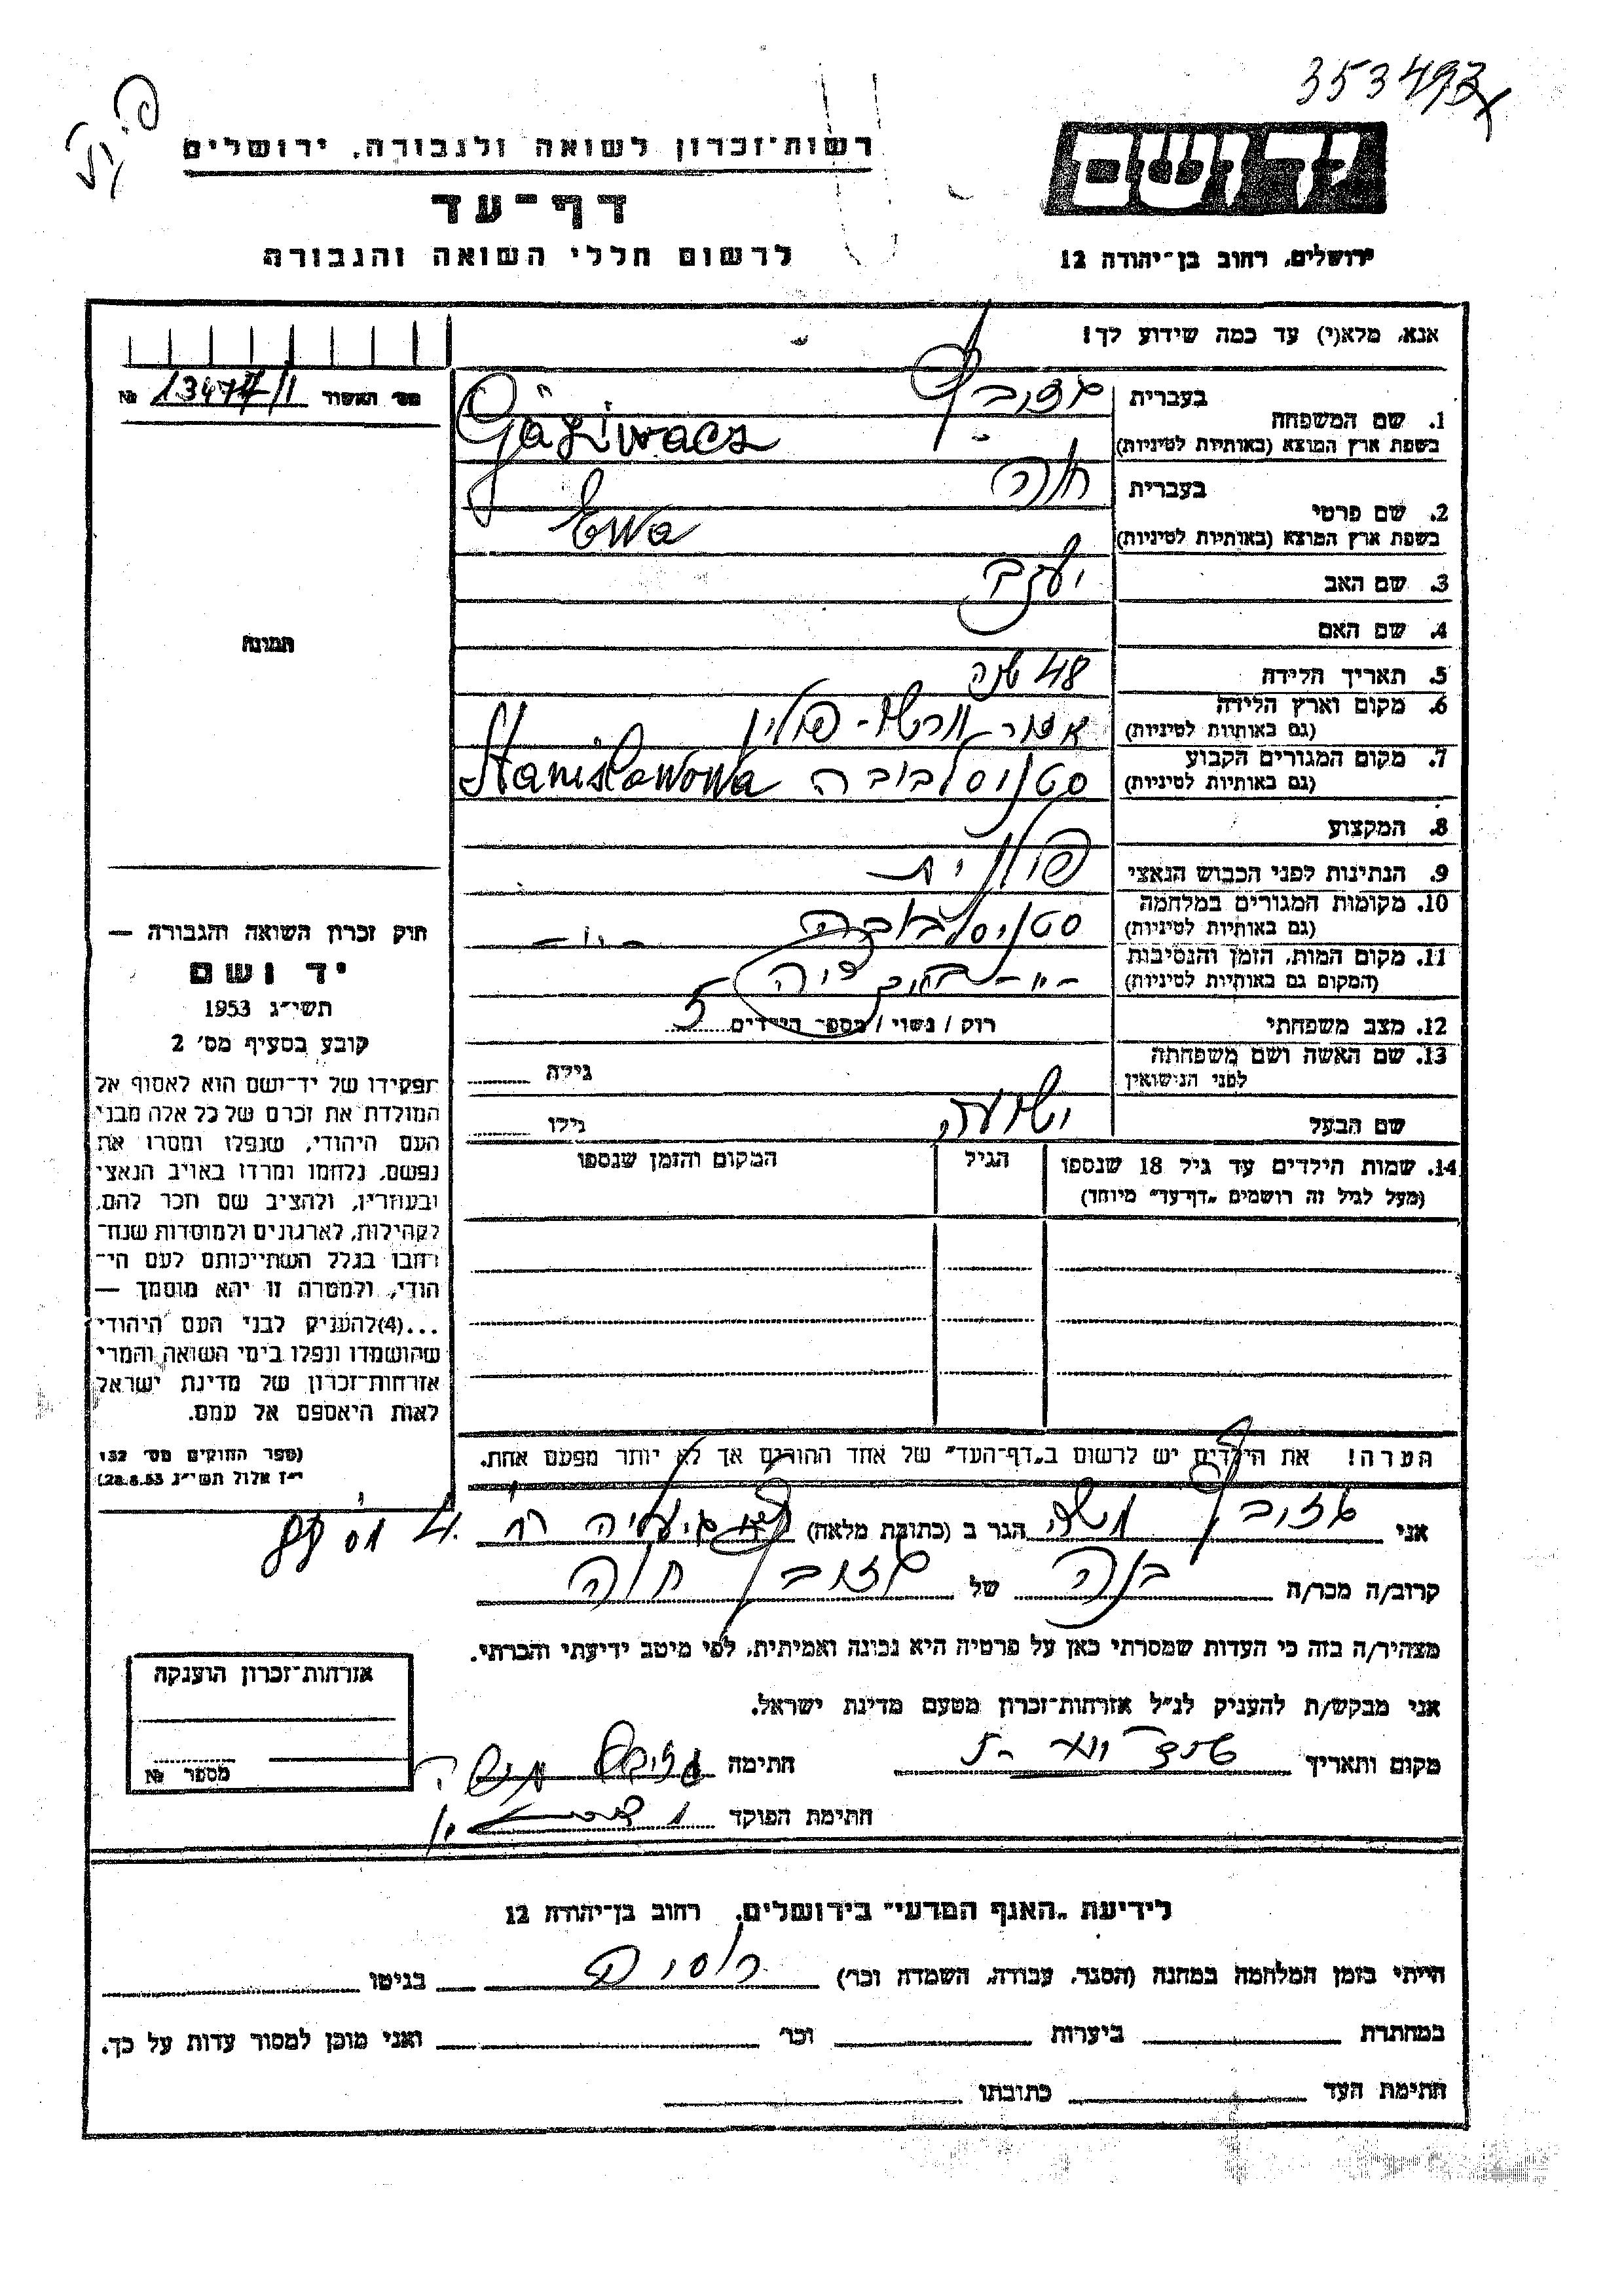 353493
יד ושם
רשות־זכרון לשואה ולגבורה, ירושלים
דף־עד
לרשום חללי השואה והגבורה
ירושלים, רחוב בן־יהודה 12
אנא, מלא(י) עד כמה שידוע לך!
מס׳ האשור 13477/1 №
1. שם המשפחה
בעברית
בשפת ארץ המוצא (באותיות לטיניות)
2. שם פרטי
בעברית חוה
בשפת ארץ המוצא (באותיות לטיניות) Ewa
3. שם האב יעקב
4. שם האם
5. תאריך הלידה 48 שנה
6. מקום וארץ הלידה
(גם באותיות לטיניות) פולין
7. מקום המגורים הקבוע
(גם באותיות לטיניות) סטניסלבובה Stanisławowa
8. המקצוע
9. הנתינות לפני הכבוש הנאצי פולנית
10. מקומות המגורים במלחמה
(גם באותיות לטיניות) סטניסלבובה
11. מקום המות, הזמן והנסיבות
(המקום גם באותיות לטיניות)
12. מצב משפחתי רוק / נשוי / מספר הילדים 5
13. שם האשה ושם משפחתה
לפני הנישואין גילה
שם הבעל גילו
14. שמות הילדים עד גיל 18 שנספו
(מעל לגיל זה רושמים „דף־עד״ מיוחד)
הגיל
המקום והזמן שנספו
תמונה
חוק זכרון השואה והגבורה —
יד ושם
תשי״ג 1953
קובע בסעיף מס׳ 2
תפקידו של יד־ושם הוא לאסוף אל
המולדת את זכרם של כל אלה מבני
העם היהודי, שנפלו ומסרו את
נפשם, נלחמו ומרדו באויב הנאצי
ובעוזריו, ולהציב שם וזכר להם,
לקהילות, לארגונים ולמוסדות שנח־
רבו בגלל השתייכותם לעם הי־
הודי, ולמטרה זו יהא מוסמך —
...(4)להעניק לבני העם היהודי
שהושמדו ונפלו בימי השואה והמרי
אזרחות־זכרון של מדינת ישראל
לאות היאספם אל עמם.
(ספר החוקים מס׳ 132
י״ז אלול תשי״ג 28.8.53)
הערה! את הילדים יש לרשום ב„דף־העד״ של אחד ההורים אך לא יותר מפעם אחת.
אני הגר ב (כתובת מלאה)
קרוב/ה מכר/ה בנה של חוה
מצהיר/ה בזה כי העדות שמסרתי כאן על פרטיה היא נכונה ואמיתית, לפי מיטב ידיעתי והכרתי.
אני מבקש/ת להעניק לנ״ל אזרחות־זכרון מטעם מדינת ישראל.
מקום ותאריך חתימה
חתימת הפוקד
אזרחות־זכרון הוענקה
מספר №
לידיעת „האגף המדעי״ בירושלים, רחוב בן־יהודה 12
הייתי בזמן המלחמה במחנה (הסגר, עבודה, השמדה וכו׳) רוסיה בגיטו
במחתרת ביערות וכו׳ ואני מוכן למסור עדות על כך.
חתימת העד כתובתו